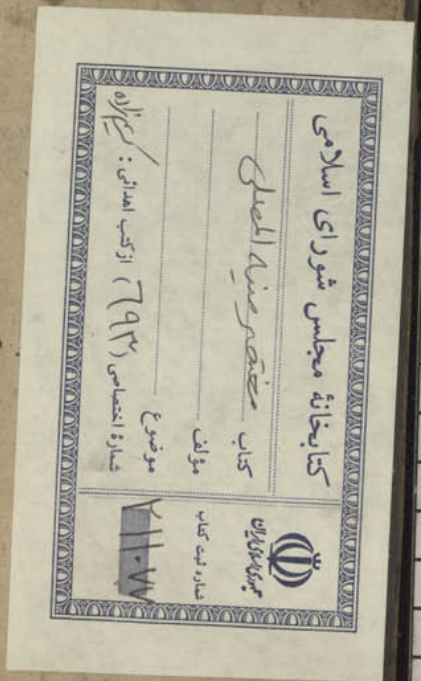 کتابخانهٔ مجلس شورای اسلامی
کتاب مختصر منیه المصلی
مؤلف
موضوع
شمارهٔ اختصاصی (۶۹۳) از کتب اهدائی:
جمهوری اسلامی ایران
شماره ثبت کتاب
۲۱۱۰۷۷